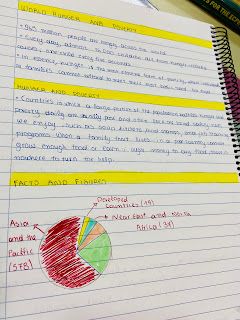 WORLD HUNGER AND POVERTY
• 963 million people are hungry across the world.
• Every day, almost 16,000 children die from hunger-related
causes - one child every five seconds.
• In essence, hunger is the most extreme form of poverty, where individuals
or families cannot afford to meet their most basic need for food.
HUNGER AND POVERTY
• Countries in which a large portion of the population battles hunger and
poverty daily are usually poor and often lack the social safety nets
we enjoy, such as soup kitchens, food stamps, and job training
programs. When a family that lives in a poor country cannot
grow enough food or earn enough money to buy food, there is
nowhere to turn for help.
FACTS AND FIGURES
Developed
Countries (19)
Near East and North
Africa (37)
Asia
and the
Pacific
(578)